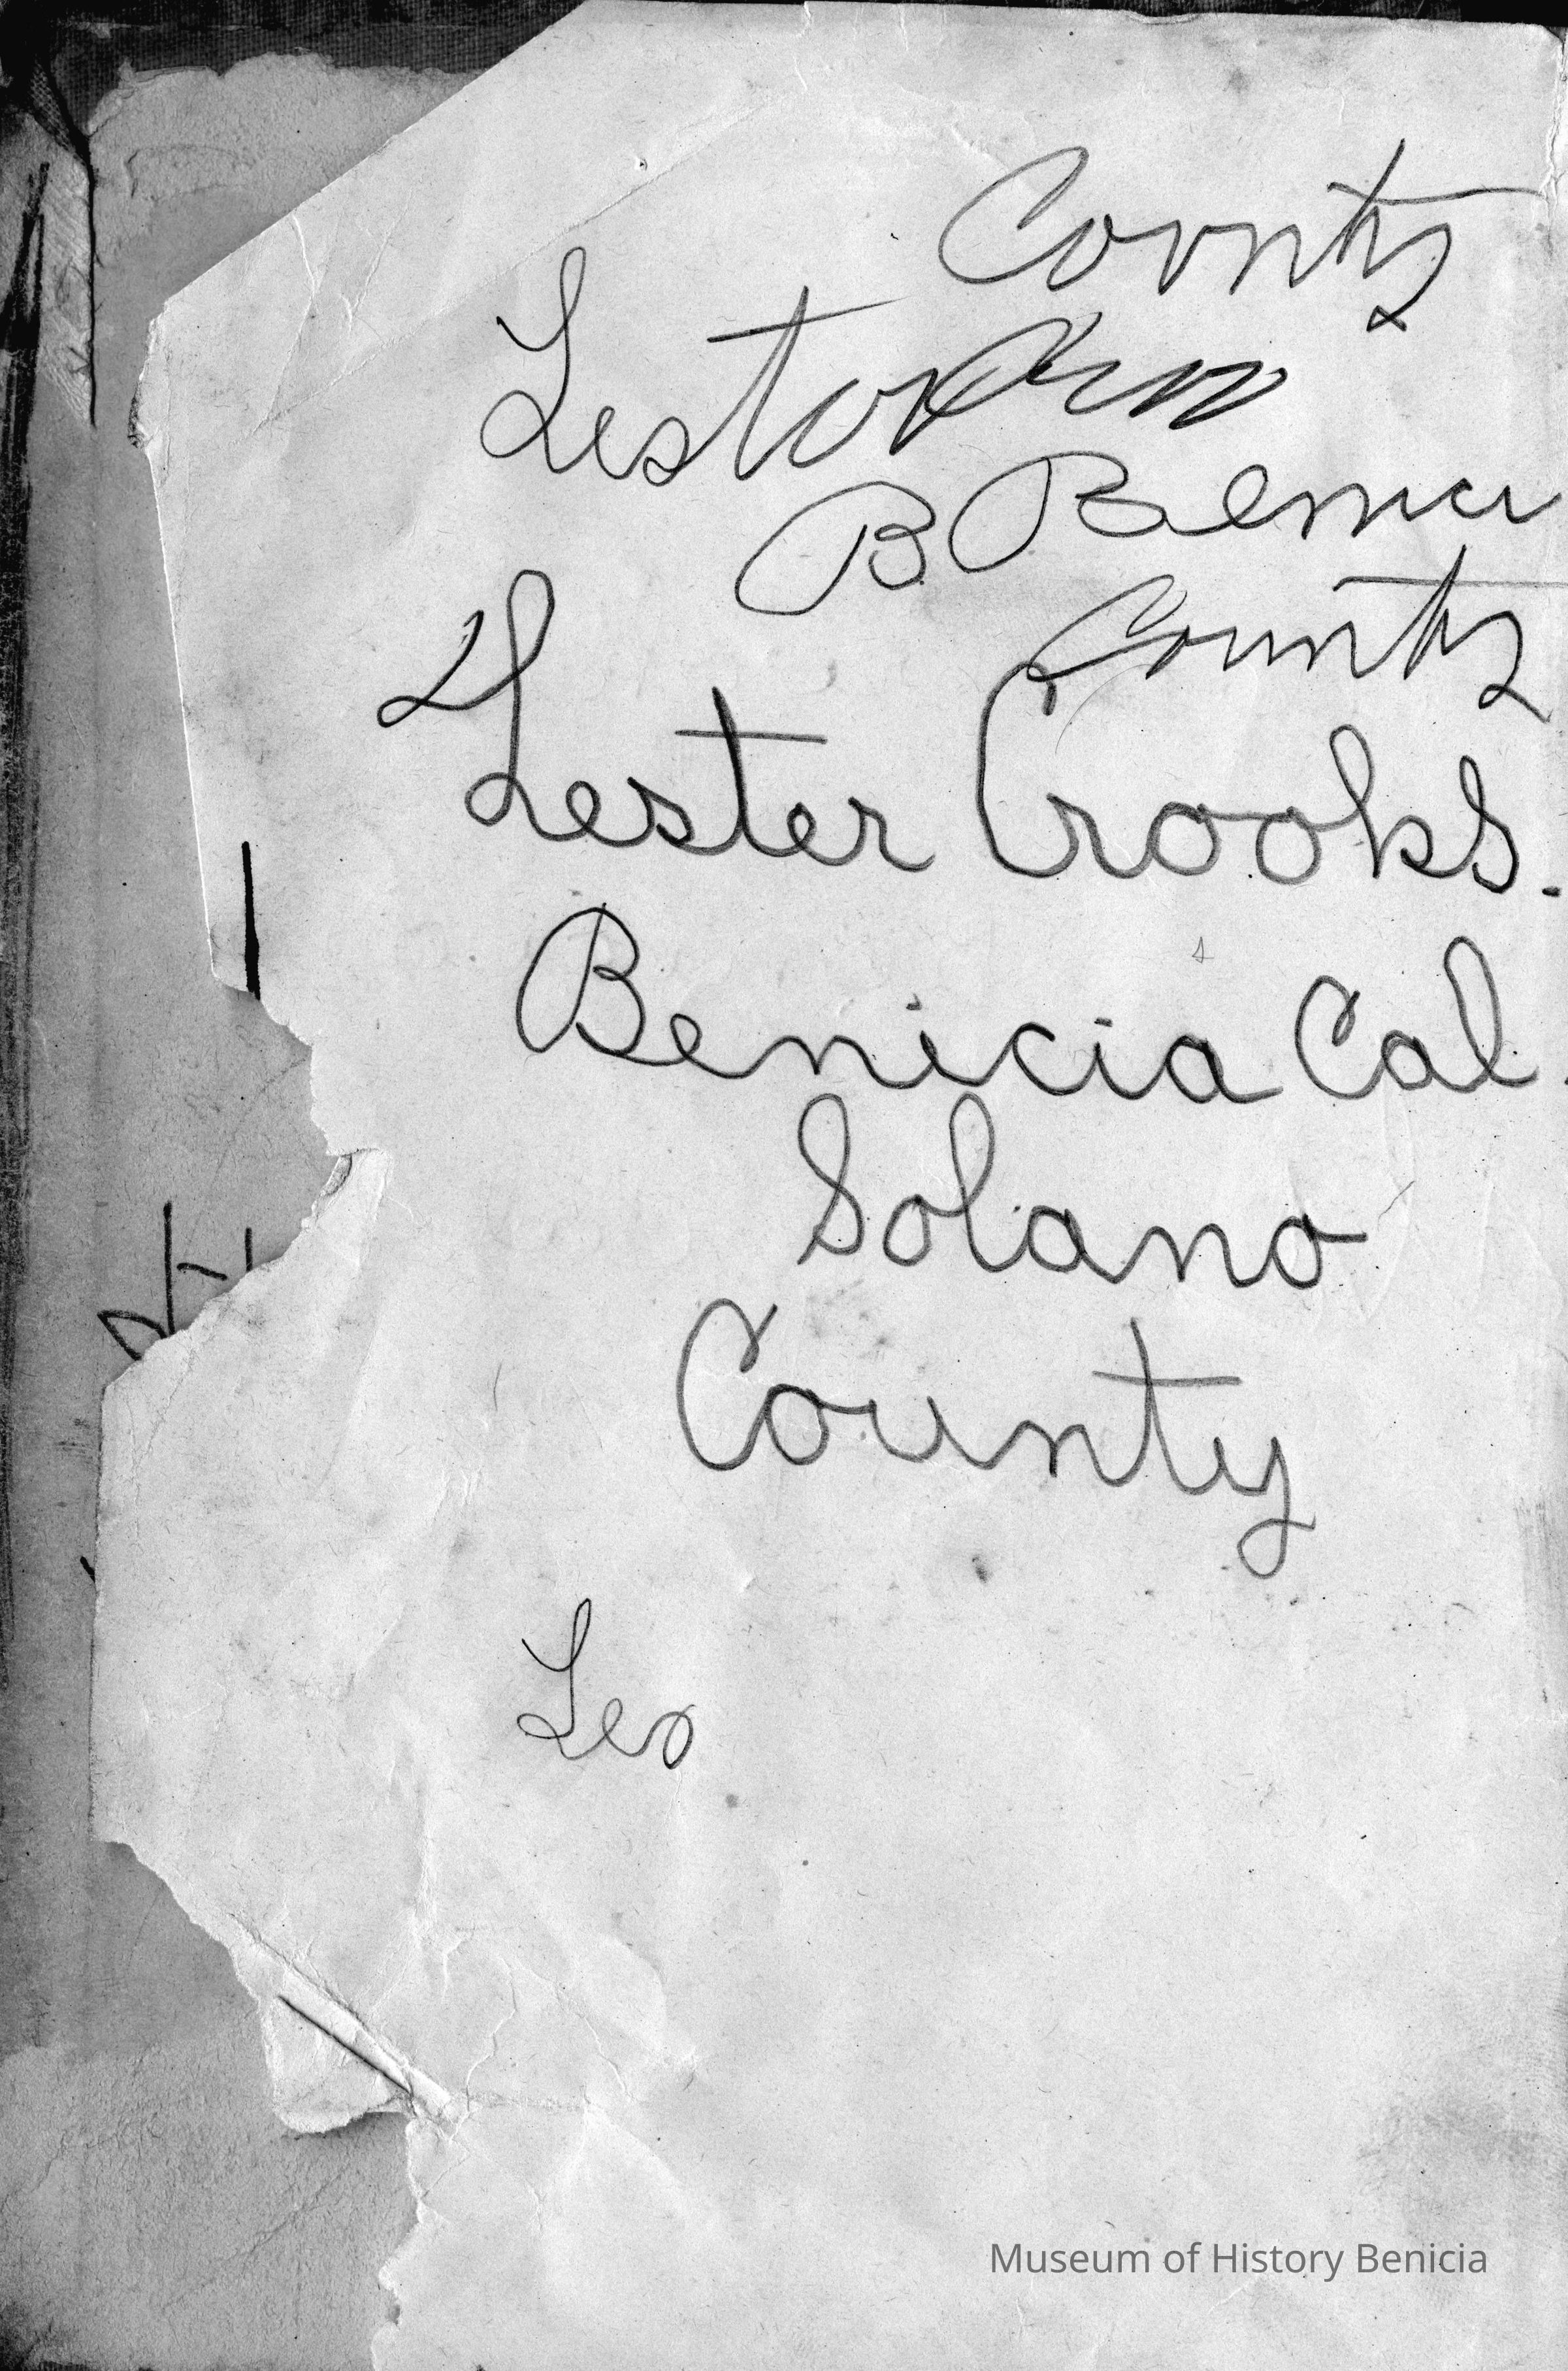 County
Lester
B Benici
County
L Lester Crooks.
Benicia Cal.
Solano
County
Les
Museum of History Benicia